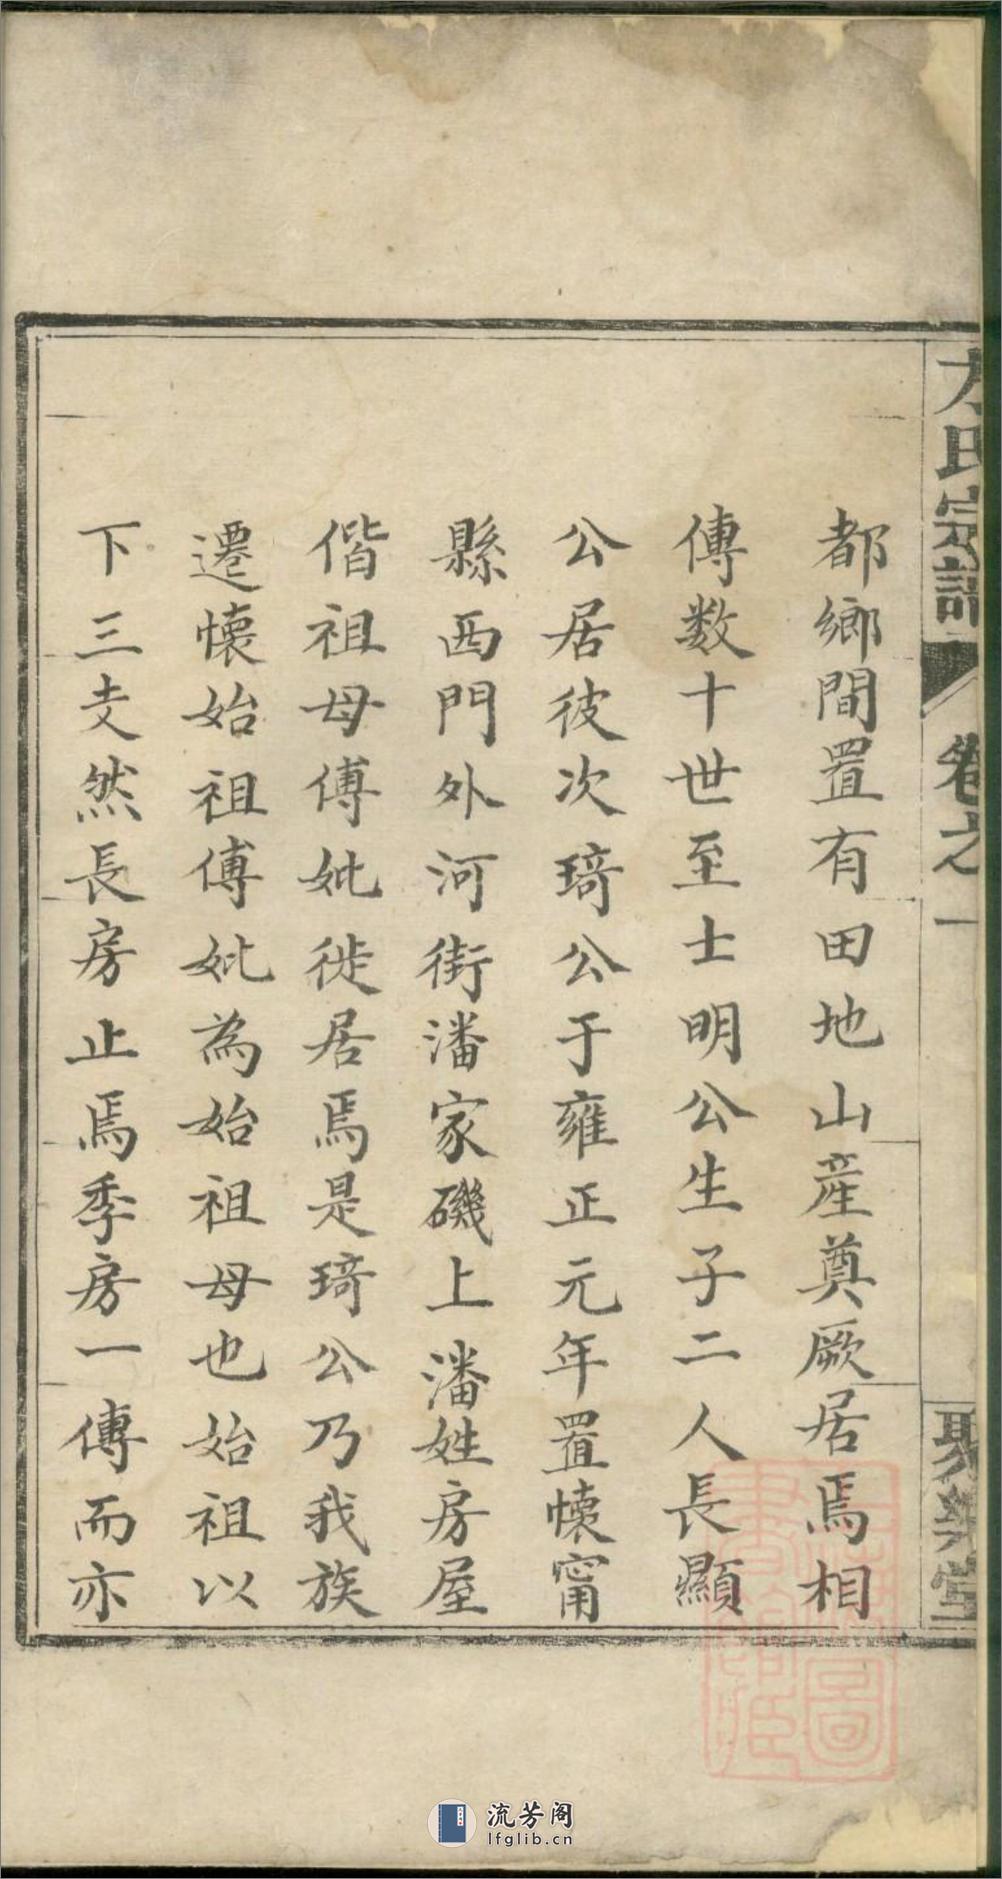 氏宗譜 卷之一
都鄉間置有田地山産奠厥居焉相
傳数十世至士明公生子二人長顯
公居彼次琦公于雍正元年置懐甯
縣西門外河街潘家磯上潘姓房屋
偕祖母傅妣徙居焉是琦公乃我族
遷懐始祖傅妣為始祖母也始祖以
下三支然長房止焉季房一傳而亦
流芳阁
lfglib.cn